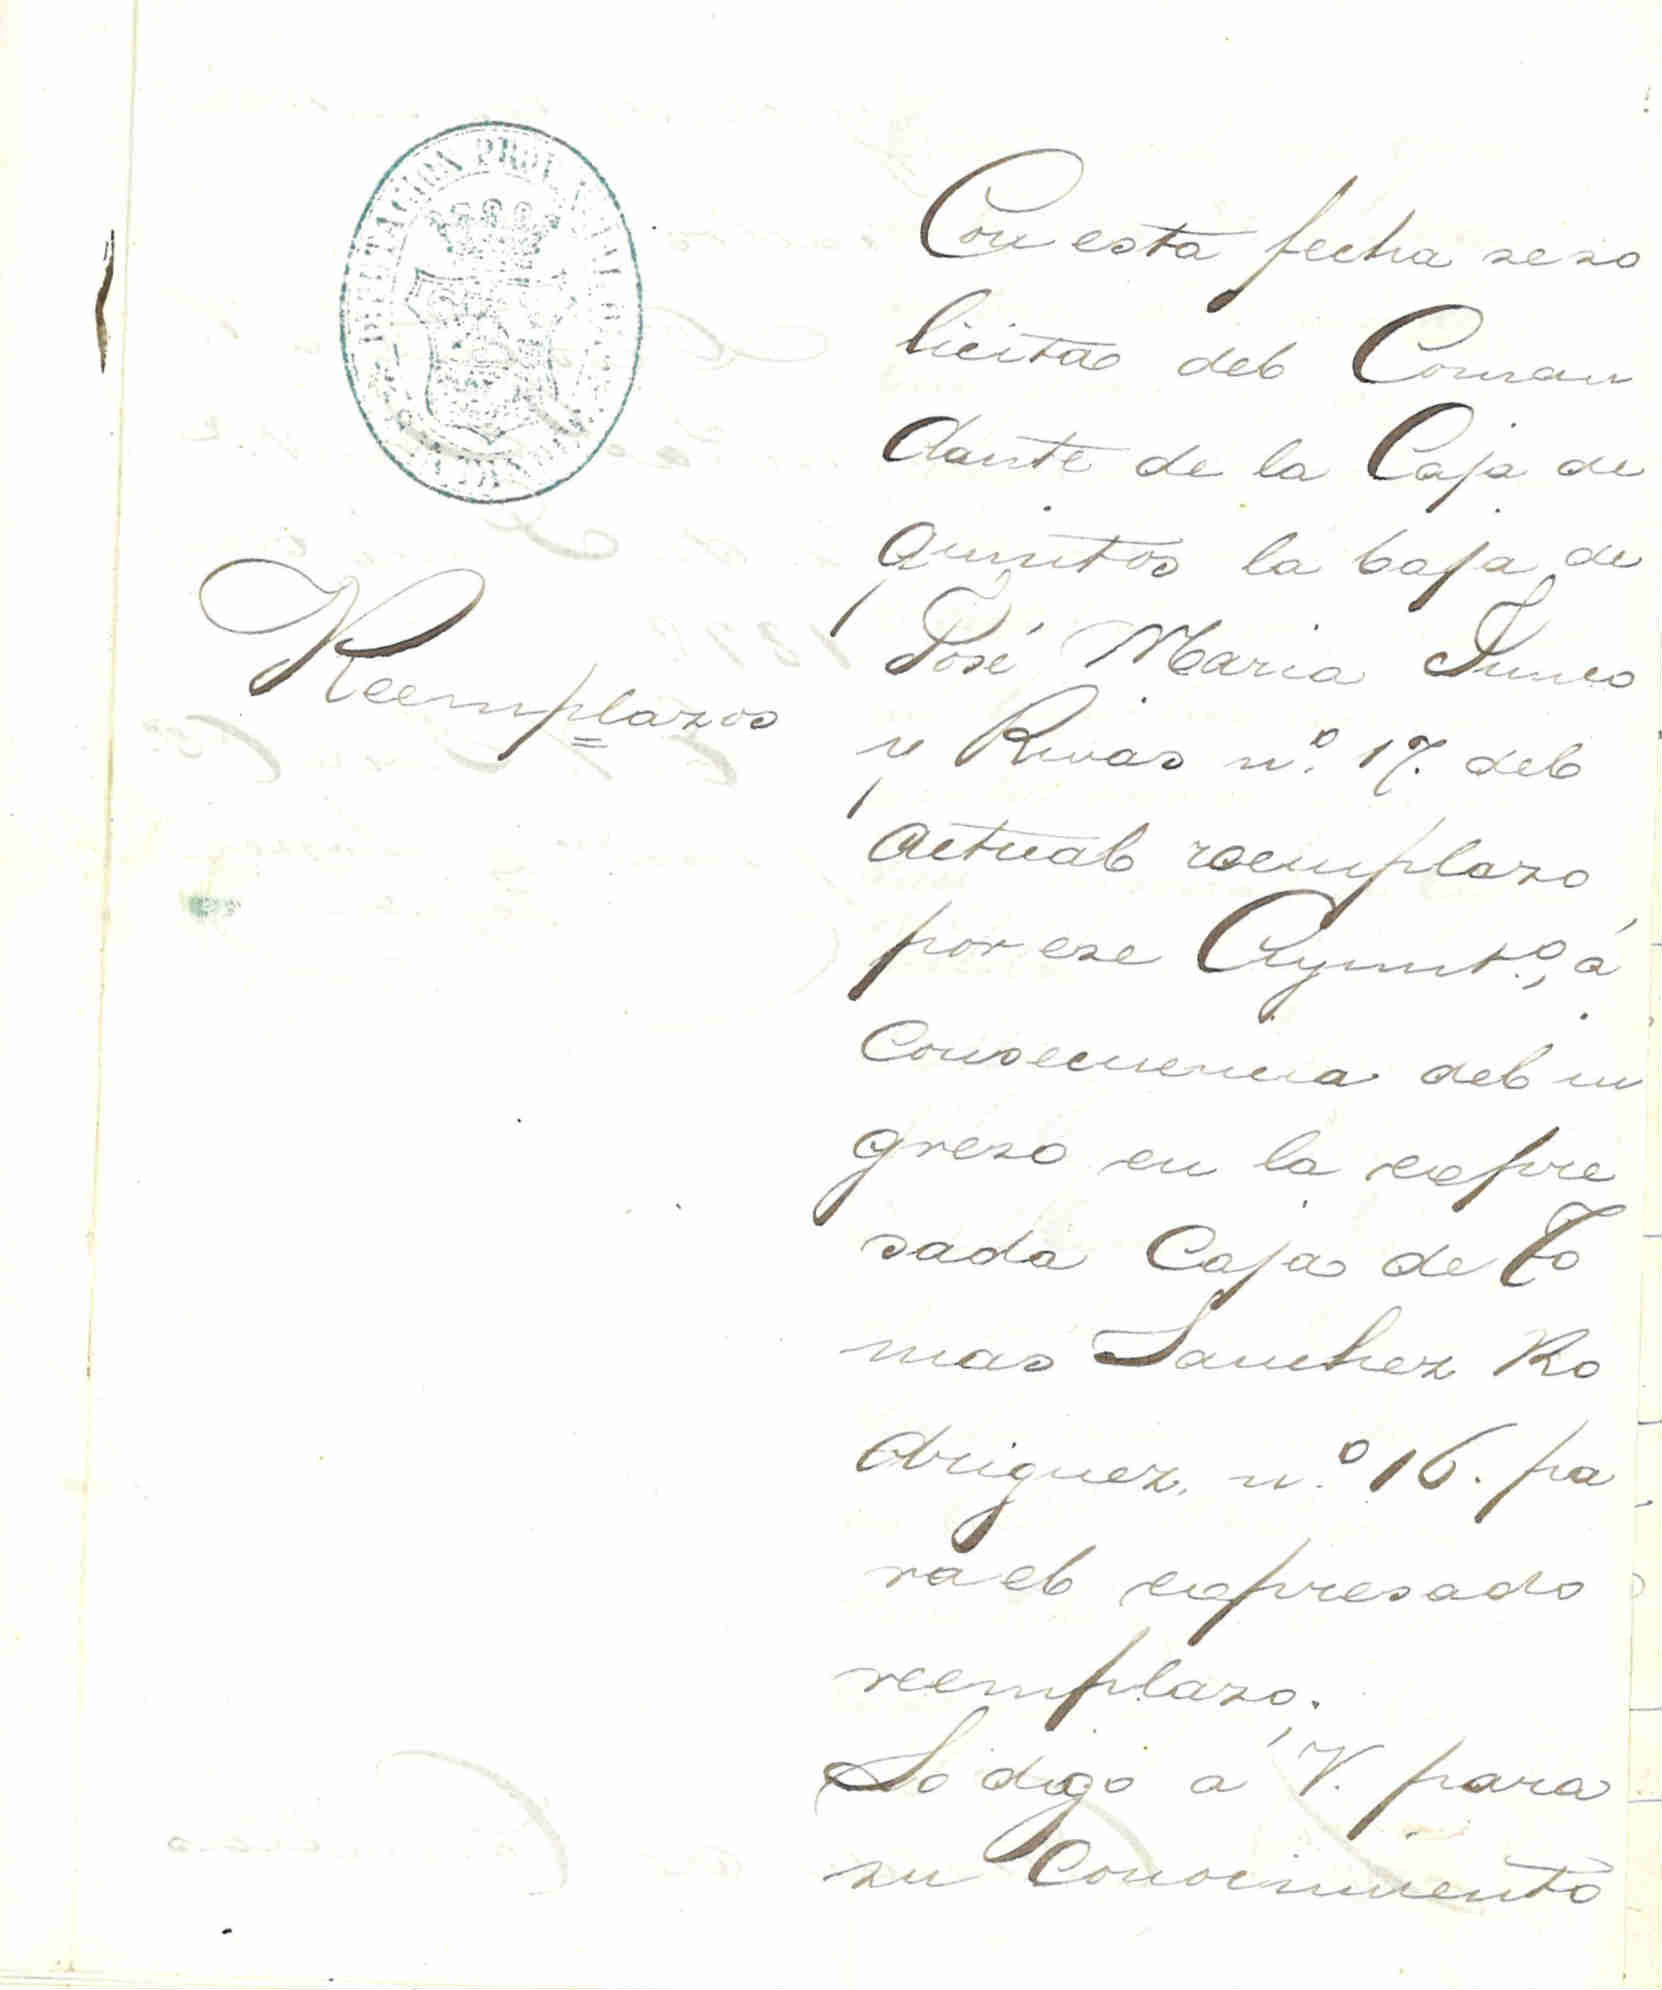 DIPUTACION PROVINCIAL
Reemplazos
Con esta fecha se so
licita del Coman
dante de la Caja de
quintos la baja de
José Maria Junco
y Rivas n.º 17. del
actual reemplazo
por ese Ayunt.º, á
consecuencia del in
greso en la espre
sada Caja de To
mas Sanchez Ro
driguez, n.º 16. pa
ra el espresado
reemplazo.
Lo digo á V. para
su conocimiento